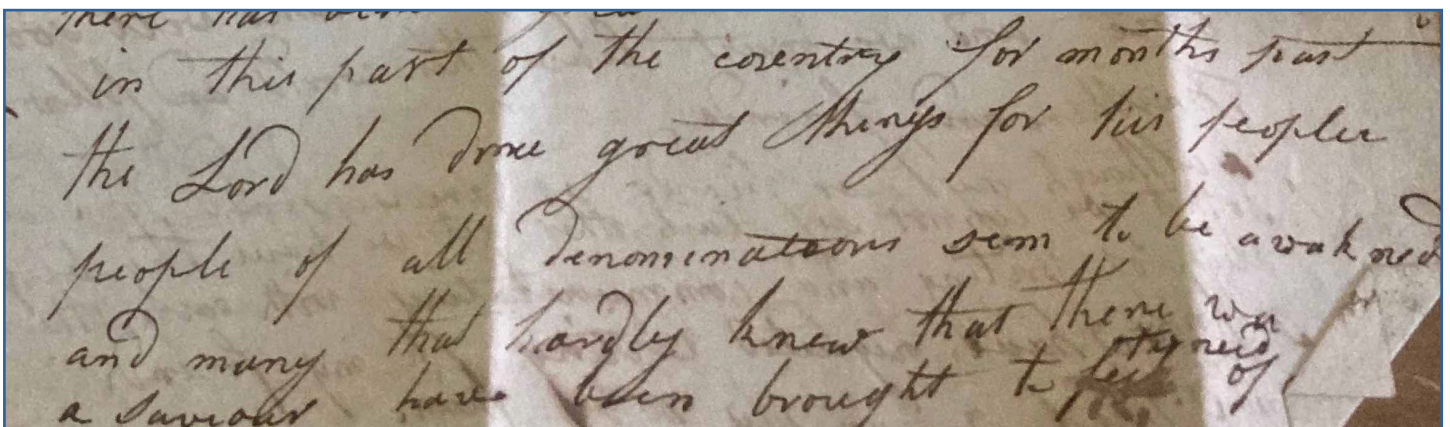 there has been
in this part of the country for months past
the Lord has done great things for his people
people of all denominations seem to be awakned
and many that hardly knew that there wa
a Saviour have been brought to feel of